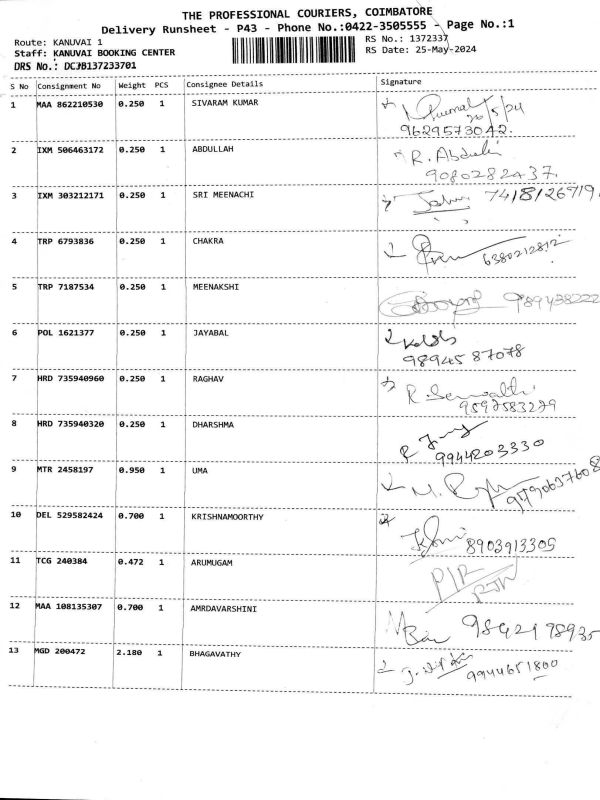 THE PROFESSIONAL COURIERS, COIMBATORE
Delivery Runsheet - P43 - Phone No.:0422-3505555 - Page No.:1
Route: KANUVAI 1
RS No.: 1372337
Staff: KANUVAI BOOKING CENTER
RS Date: 25-May-2024
DRS No.: DC3B137233701
S No Consignment No Weight PCS Consignee Details Signature
1 MAA 862210530 0.250 1 SIVARAM KUMAR
9629573042.
2 IXM 506463172 0.250 1 ABDULLAH R. Abdul
9080282437.
3 IXM 303212171 0.250 1 SRI MEENACHI 7418126919
4 TRP 6793836 0.250 1 CHAKRA 6380212812
5 TRP 7187534 0.250 1 MEENAKSHI 989438222
6 POL 1621377 0.250 1 JAYABAL
98945 87078
7 HRD 735940960 0.250 1 RAGHAV
9597583279
8 HRD 735940320 0.250 1 DHARSHMA
9944203330
9 MTR 2458197 0.950 1 UMA
10 DEL 529582424 0.700 1 KRISHNAMOORTHY 8903913305
11 TCG 240384 0.472 1 ARUMUGAM
12 MAA 108135307 0.700 1 AMRDAVARSHINI 98421 98935
13 MGD 200472 2.180 1 BHAGAVATHY 9944651800